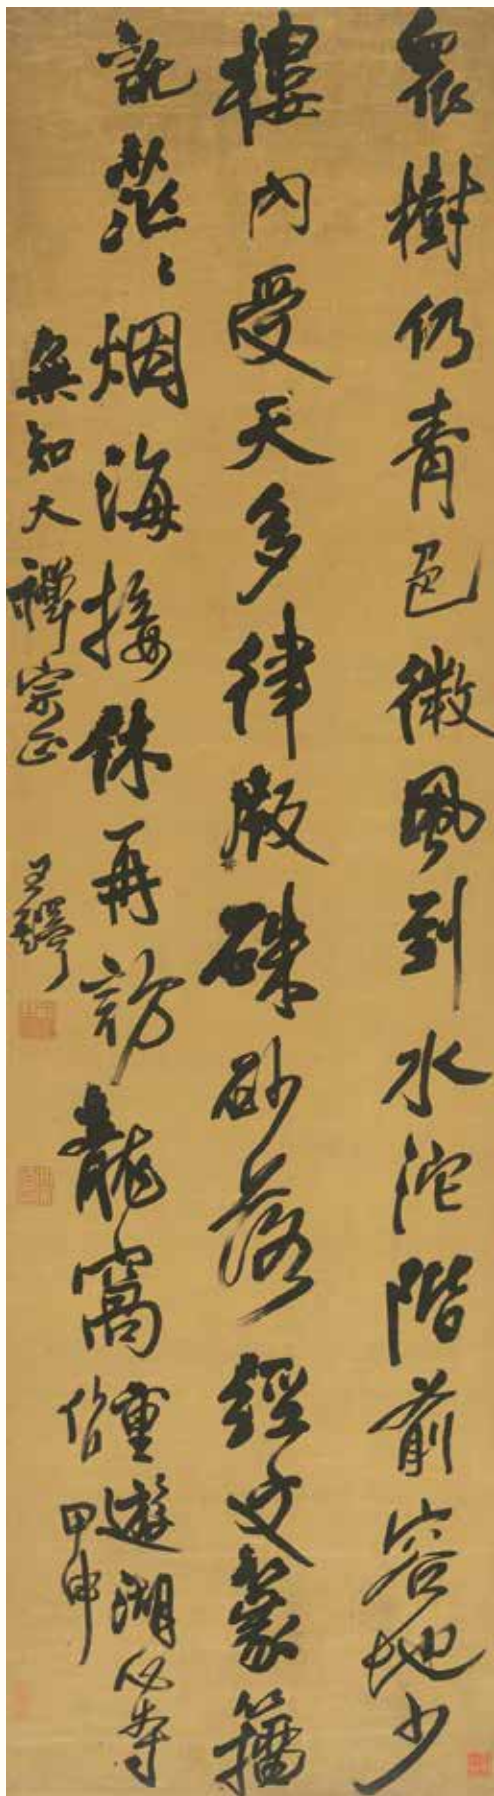 眾樹仍青色微風到水沱階前容地少
樓內受天多律殿硃砂落經文篆籀
訛茫〻烟海接休再訪龍窩重遊湖心寺
作甲申
無知大禪宗正王鐸